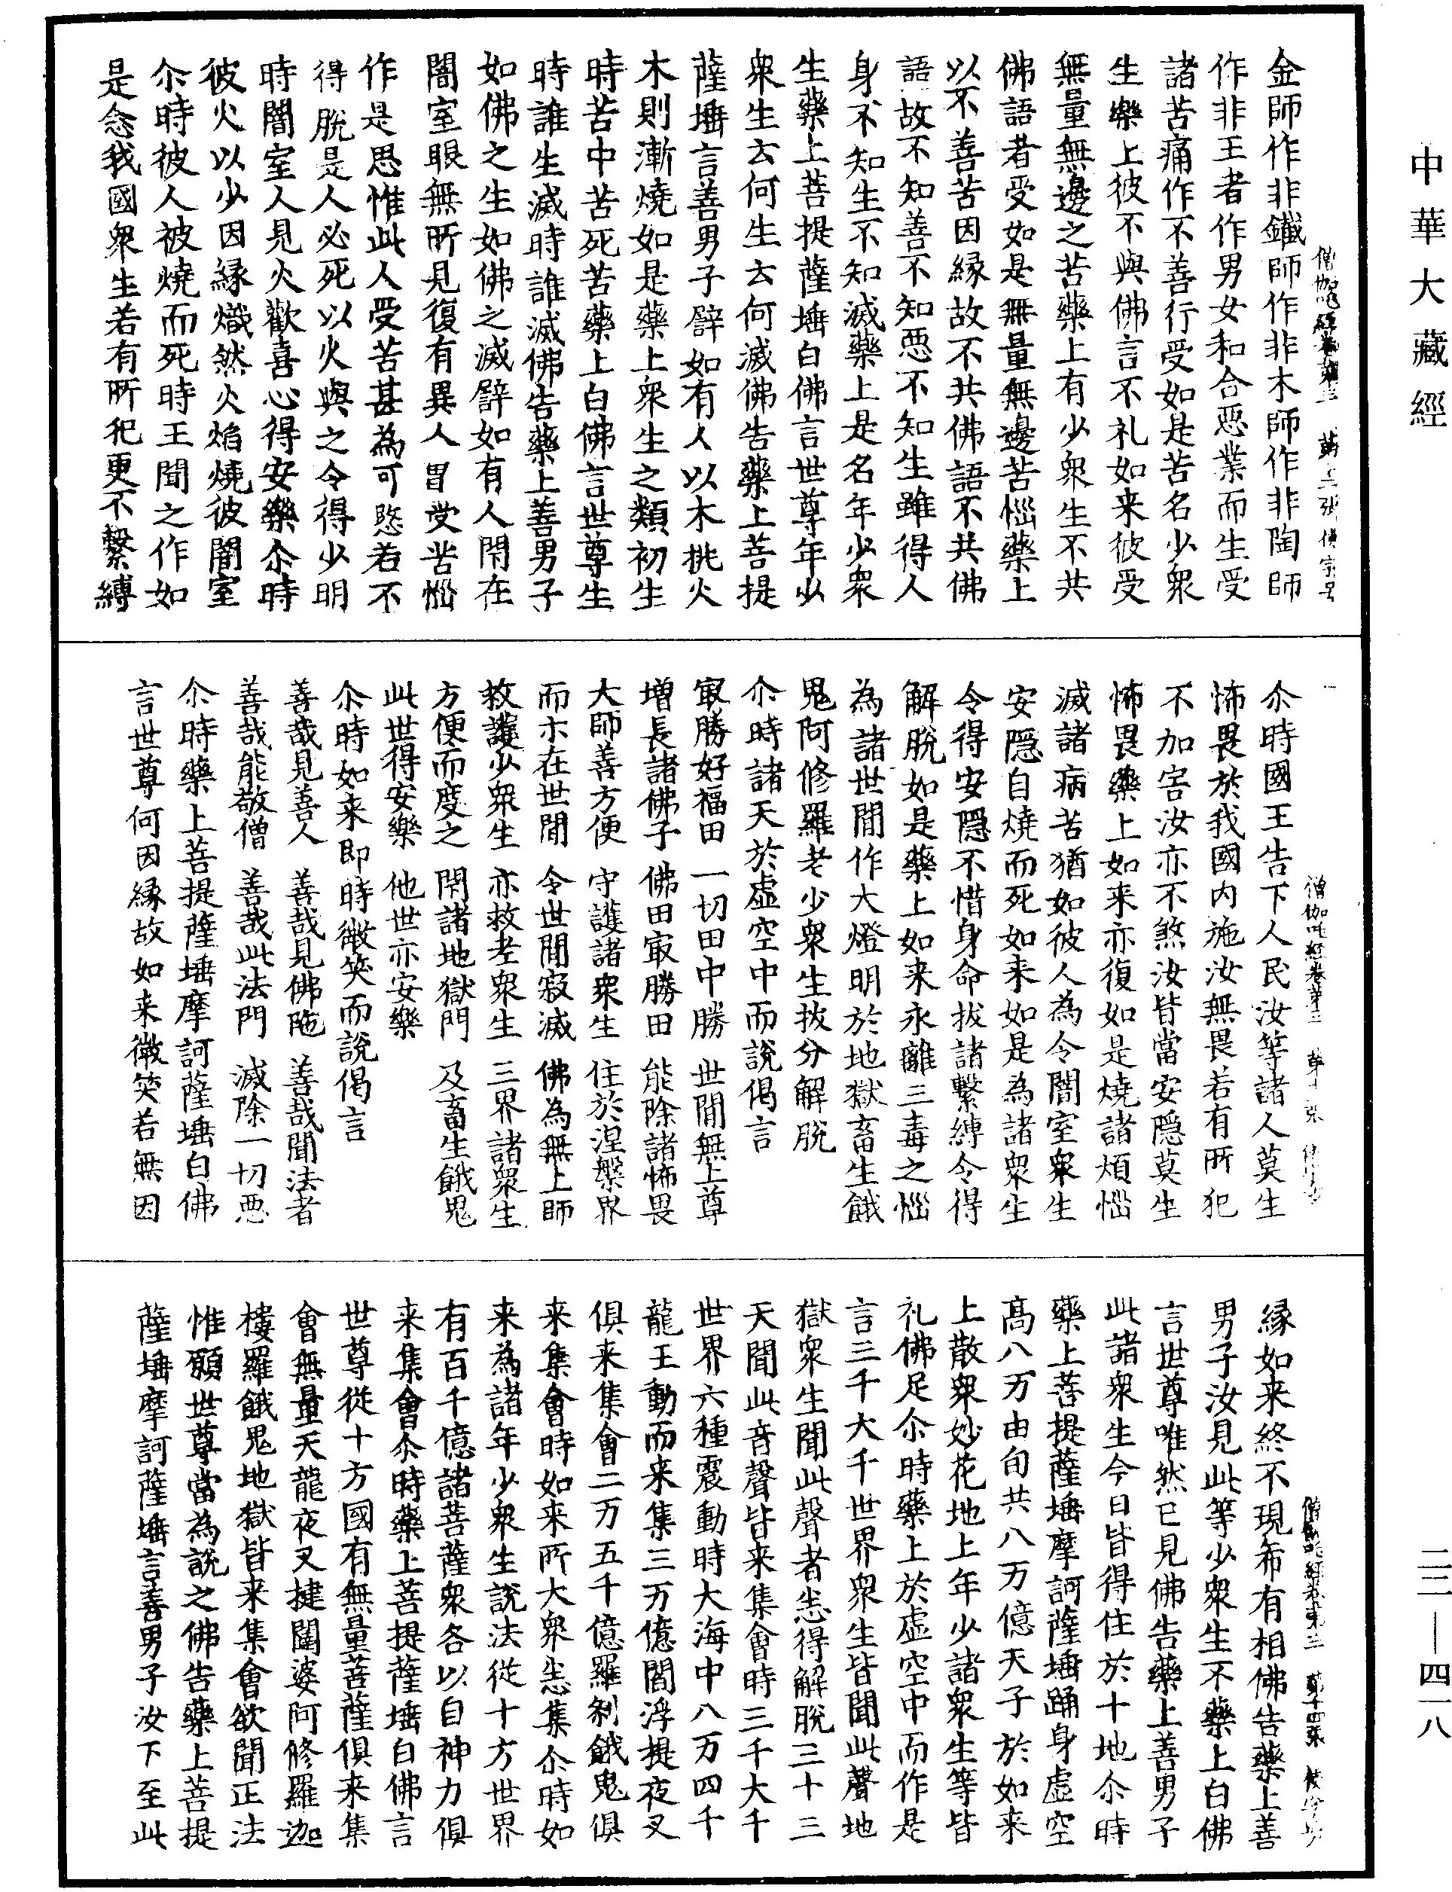 中華大藏經
金師作非鐵師作非木師作非陶師
作非王者作男女和合惡業而生受
諸苦痛作不善行受如是苦名少衆
生藥上彼不與佛言不礼如来彼受
無量無邊之苦藥上有少衆生不共
佛語者受如是無量無邊苦惱藥上
以不善苦因縁故不共佛語不共佛
語故不知善不知惡不知生雖得人
身不知生不知滅藥上是名年少衆
生藥上菩提薩埵白佛言世尊年少
衆生云何生云何滅佛告藥上菩提
薩埵言善男子譬如有人以木挑火
木則漸燒如是藥上衆生之類初生
時苦中苦死苦藥上白佛言世尊生
時誰生滅時誰滅佛告藥上善男子
如佛之生如佛之滅譬如有人閇在
闇室眼無所見復有異人曾受苦惱
作是思惟此人受苦甚為可愍若不
得脫是人必死以火與之令得少明
時闇室人見火歡喜心得安樂尒時
彼火以少因縁熾然火焰燒彼闇室
尒時彼人被燒而死時王聞之作如
是念我國衆生若有所犯更不繫縛
僧伽吒經卷第三
尒時國王告下人民汝等諸人莫生
怖畏於我國内施汝無畏若有所犯
不加害汝亦不煞汝皆當安隱莫生
怖畏藥上如来亦復如是燒諸煩惱
滅諸病苦猶如彼人為令闇室衆生
安隱自燒而死如来如是為諸衆生
令得安隱不惜身命拔諸繫縛令得
解脫如是藥上如来永離三毒之惱
為諸世間作大燈明於地獄畜生餓
鬼阿修羅老少衆生拔分解脫
尒時諸天於虛空中而說偈言
冣勝好福田 一切田中勝 世間無上尊
增長諸佛子 佛田冣勝田 能除諸怖畏
大師善方便 守護諸衆生 住於涅槃界
而亦在世間 令世間寂滅 佛為無上師
救護少衆生 亦救老衆生 三界諸衆生
方便而度之 閇諸地獄門 及畜生餓鬼
此世得安樂 他世亦安樂
尒時如来即時微笑而說偈言
善哉見善人 善哉見佛陁 善哉聞法者
善哉能敬僧 善哉此法門 滅除一切惡
尒時藥上菩提薩埵摩訶薩埵白佛
言世尊何因縁故如来微笑若無因
僧伽吒經卷第三
縁如来終不現希有相佛告藥上善
男子汝見此等少衆生不藥上白佛
言世尊唯然已見佛告藥上善男子
此諸衆生今日皆得住於十地尒時
藥上菩提薩埵摩訶薩埵踊身虛空
高八万由旬共八万億天子於如来
上散衆妙花地上年少諸衆生等皆
礼佛足尒時藥上於虛空中而作是
言三千大千世界衆生皆聞此聲地
獄衆生聞此聲者悉得解脫三十三
天聞此音聲皆来集會時三千大千
世界六種震動時大海中八万四千
龍王動而来集三万億閻浮提夜叉
俱来集會二万五千億羅剎餓鬼俱
来集會時如来所大衆悉集尒時如
来為諸年少衆生說法從十方世界
有百千億諸菩薩衆各以自神力俱
来集會尒時藥上菩提薩埵白佛言
世尊從十方國有無量菩薩俱来集
會無量天龍夜叉揵闥婆阿修羅迦
樓羅餓鬼地獄皆来集會欲聞正法
惟願世尊當為說之佛告藥上菩提
薩埵摩訶薩埵言善男子汝下至此
僧伽吒經卷第三 第十四張
二二—四一八